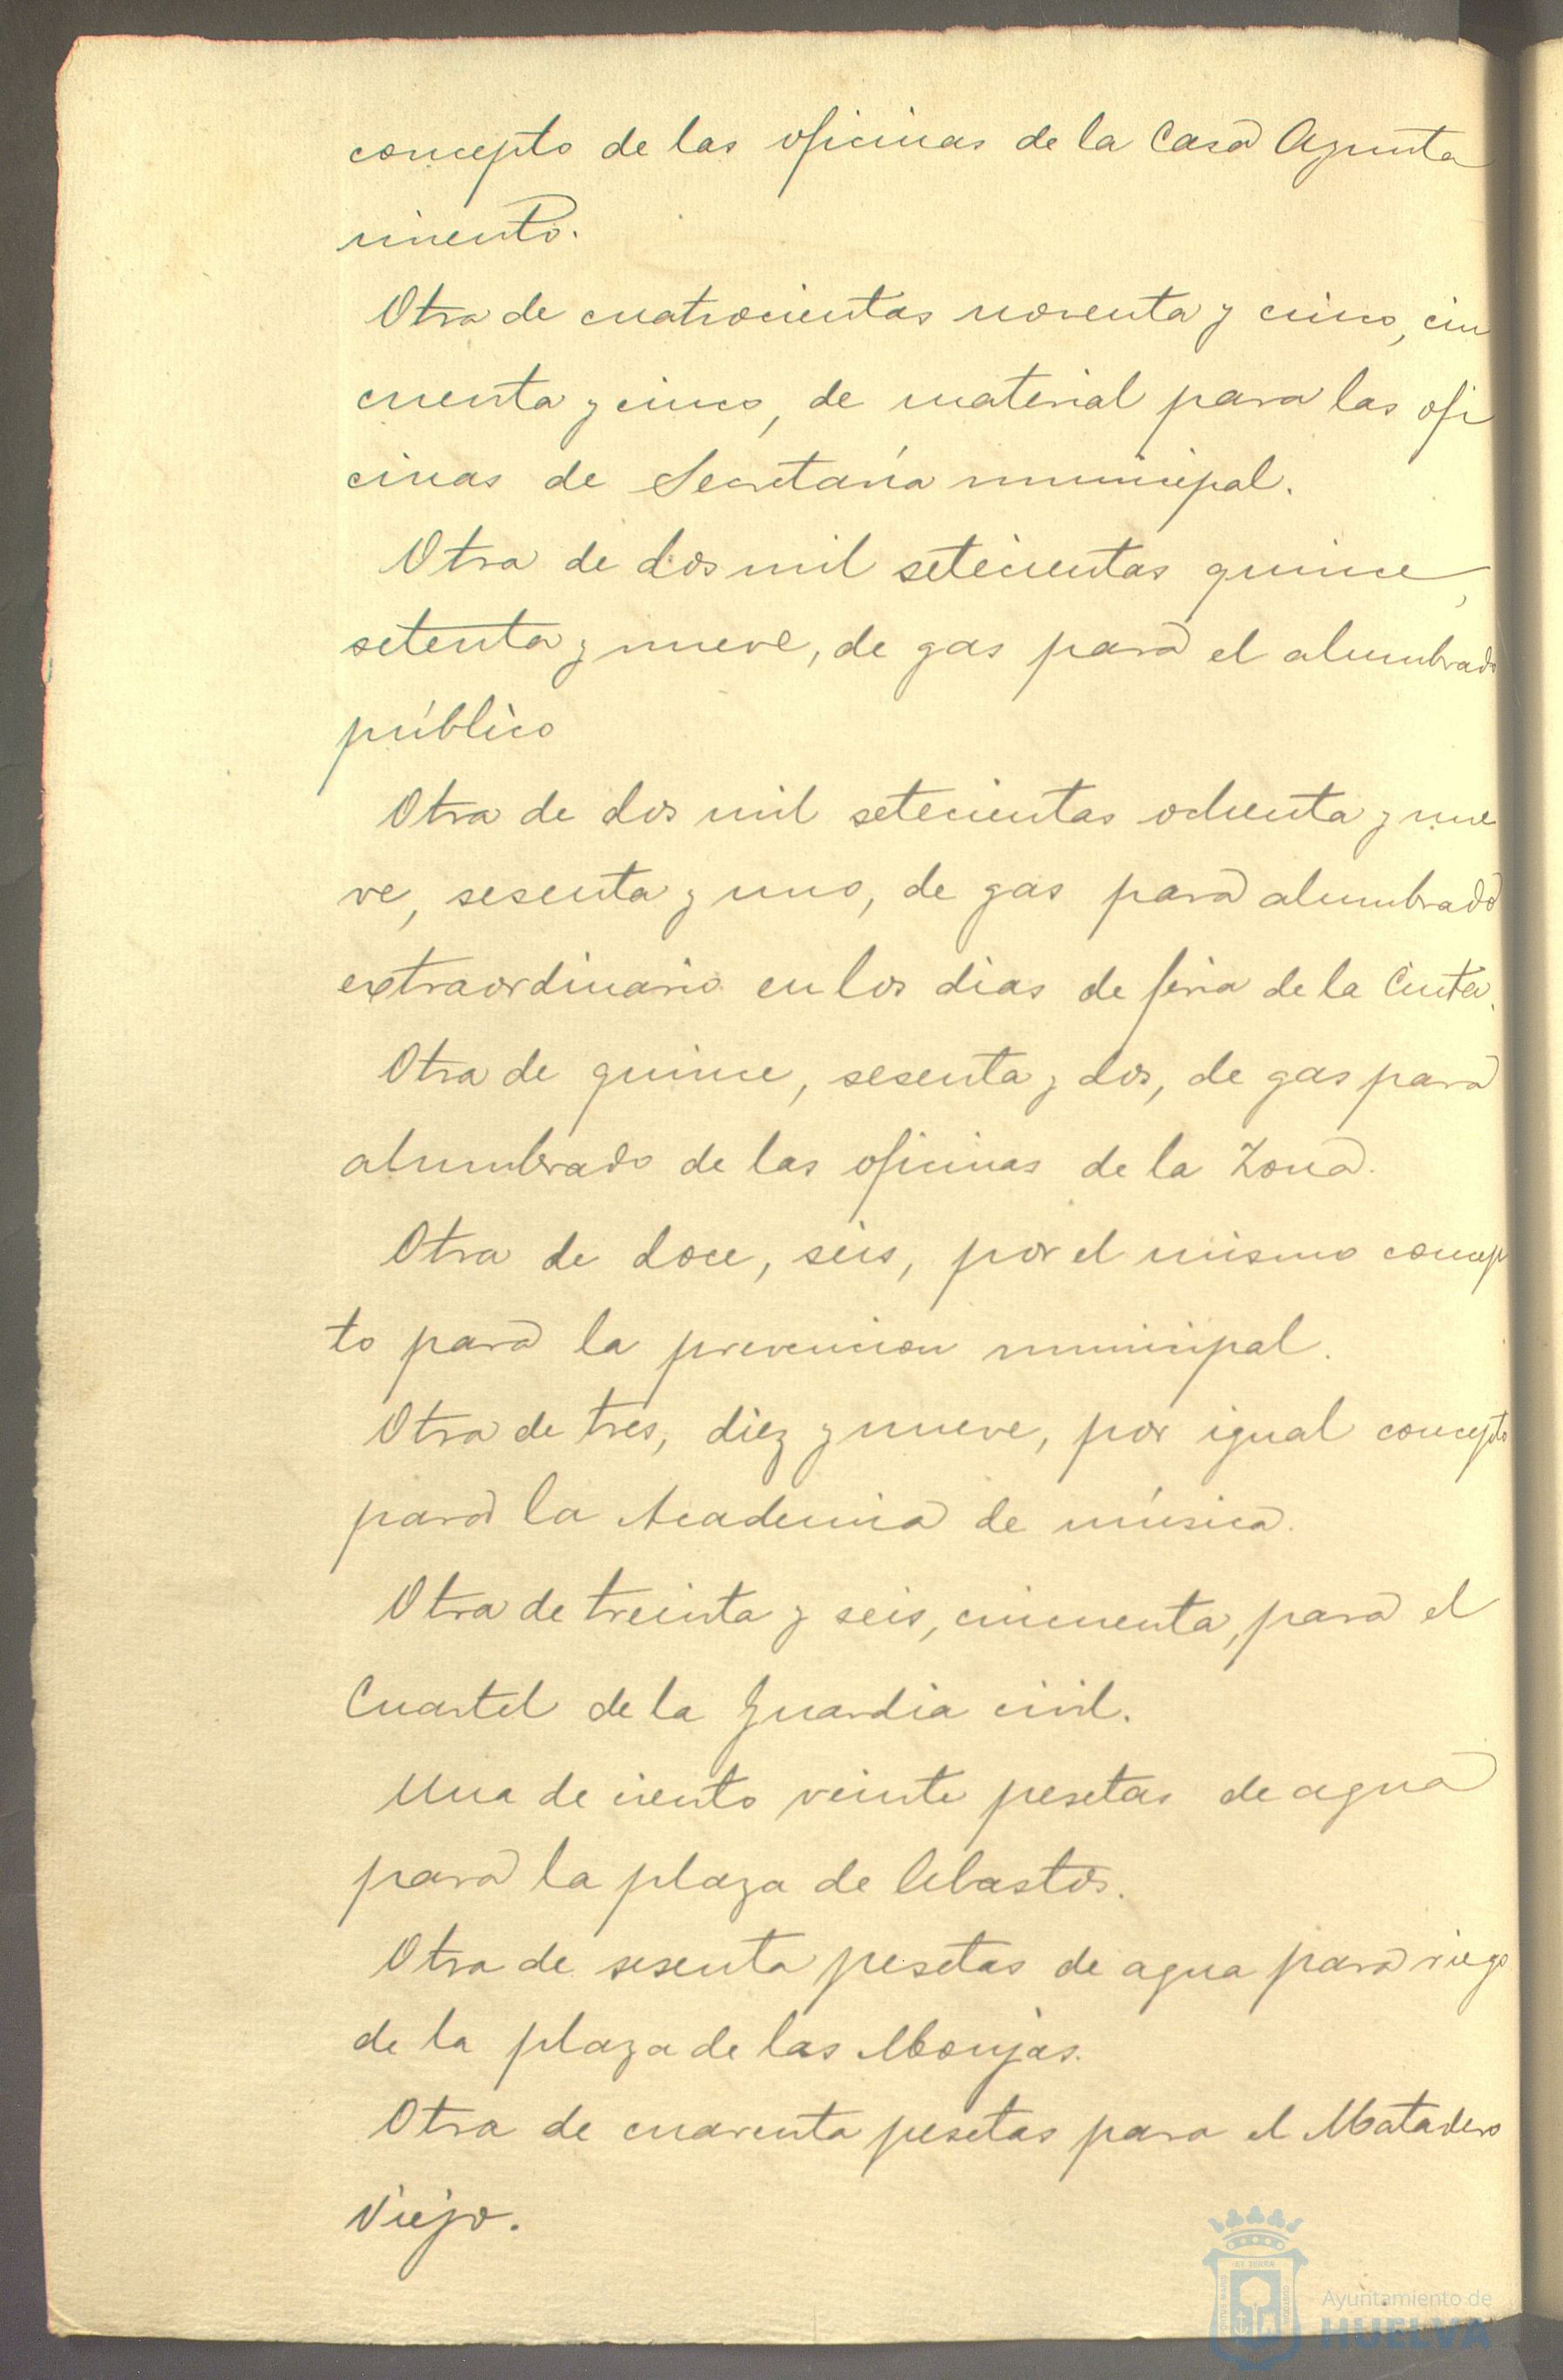 concepto de las oficinas de la Casa Ayunta
miento.
Otra de cuatrocientas noventa y cinco, cin
cuenta y cinco, de material para las ofi
cinas de Secretaría municipal.
Otra de dos mil setecientas quince,
setenta y nueve, de gas para el alumbrado
público
Otra de dos mil setecientas ochenta y nue
ve, sesenta y uno, de gas para alumbrado
extraordinario en los dias de feria de la Cinta.
Otra de quince, sesenta y dos, de gas para
alumbrado de las oficinas de la Zona.
Otra de doce, seis, por el mismo concep
to para la prevencion municipal.
Otra de tres, diez y nueve, por igual concepto
para la Academia de música.
Otra de treinta y seis, cincuenta, para el
Cuartel de la Guardia civil.
Una de ciento veinte pesetas de agua
para la plaza de Abastos.
Otra de sesenta pesetas de agua para riego
de la plaza de las Monjas.
Otra de cuarenta pesetas para el Matadero
Viejo.
Ayuntamiento de
HUELVA